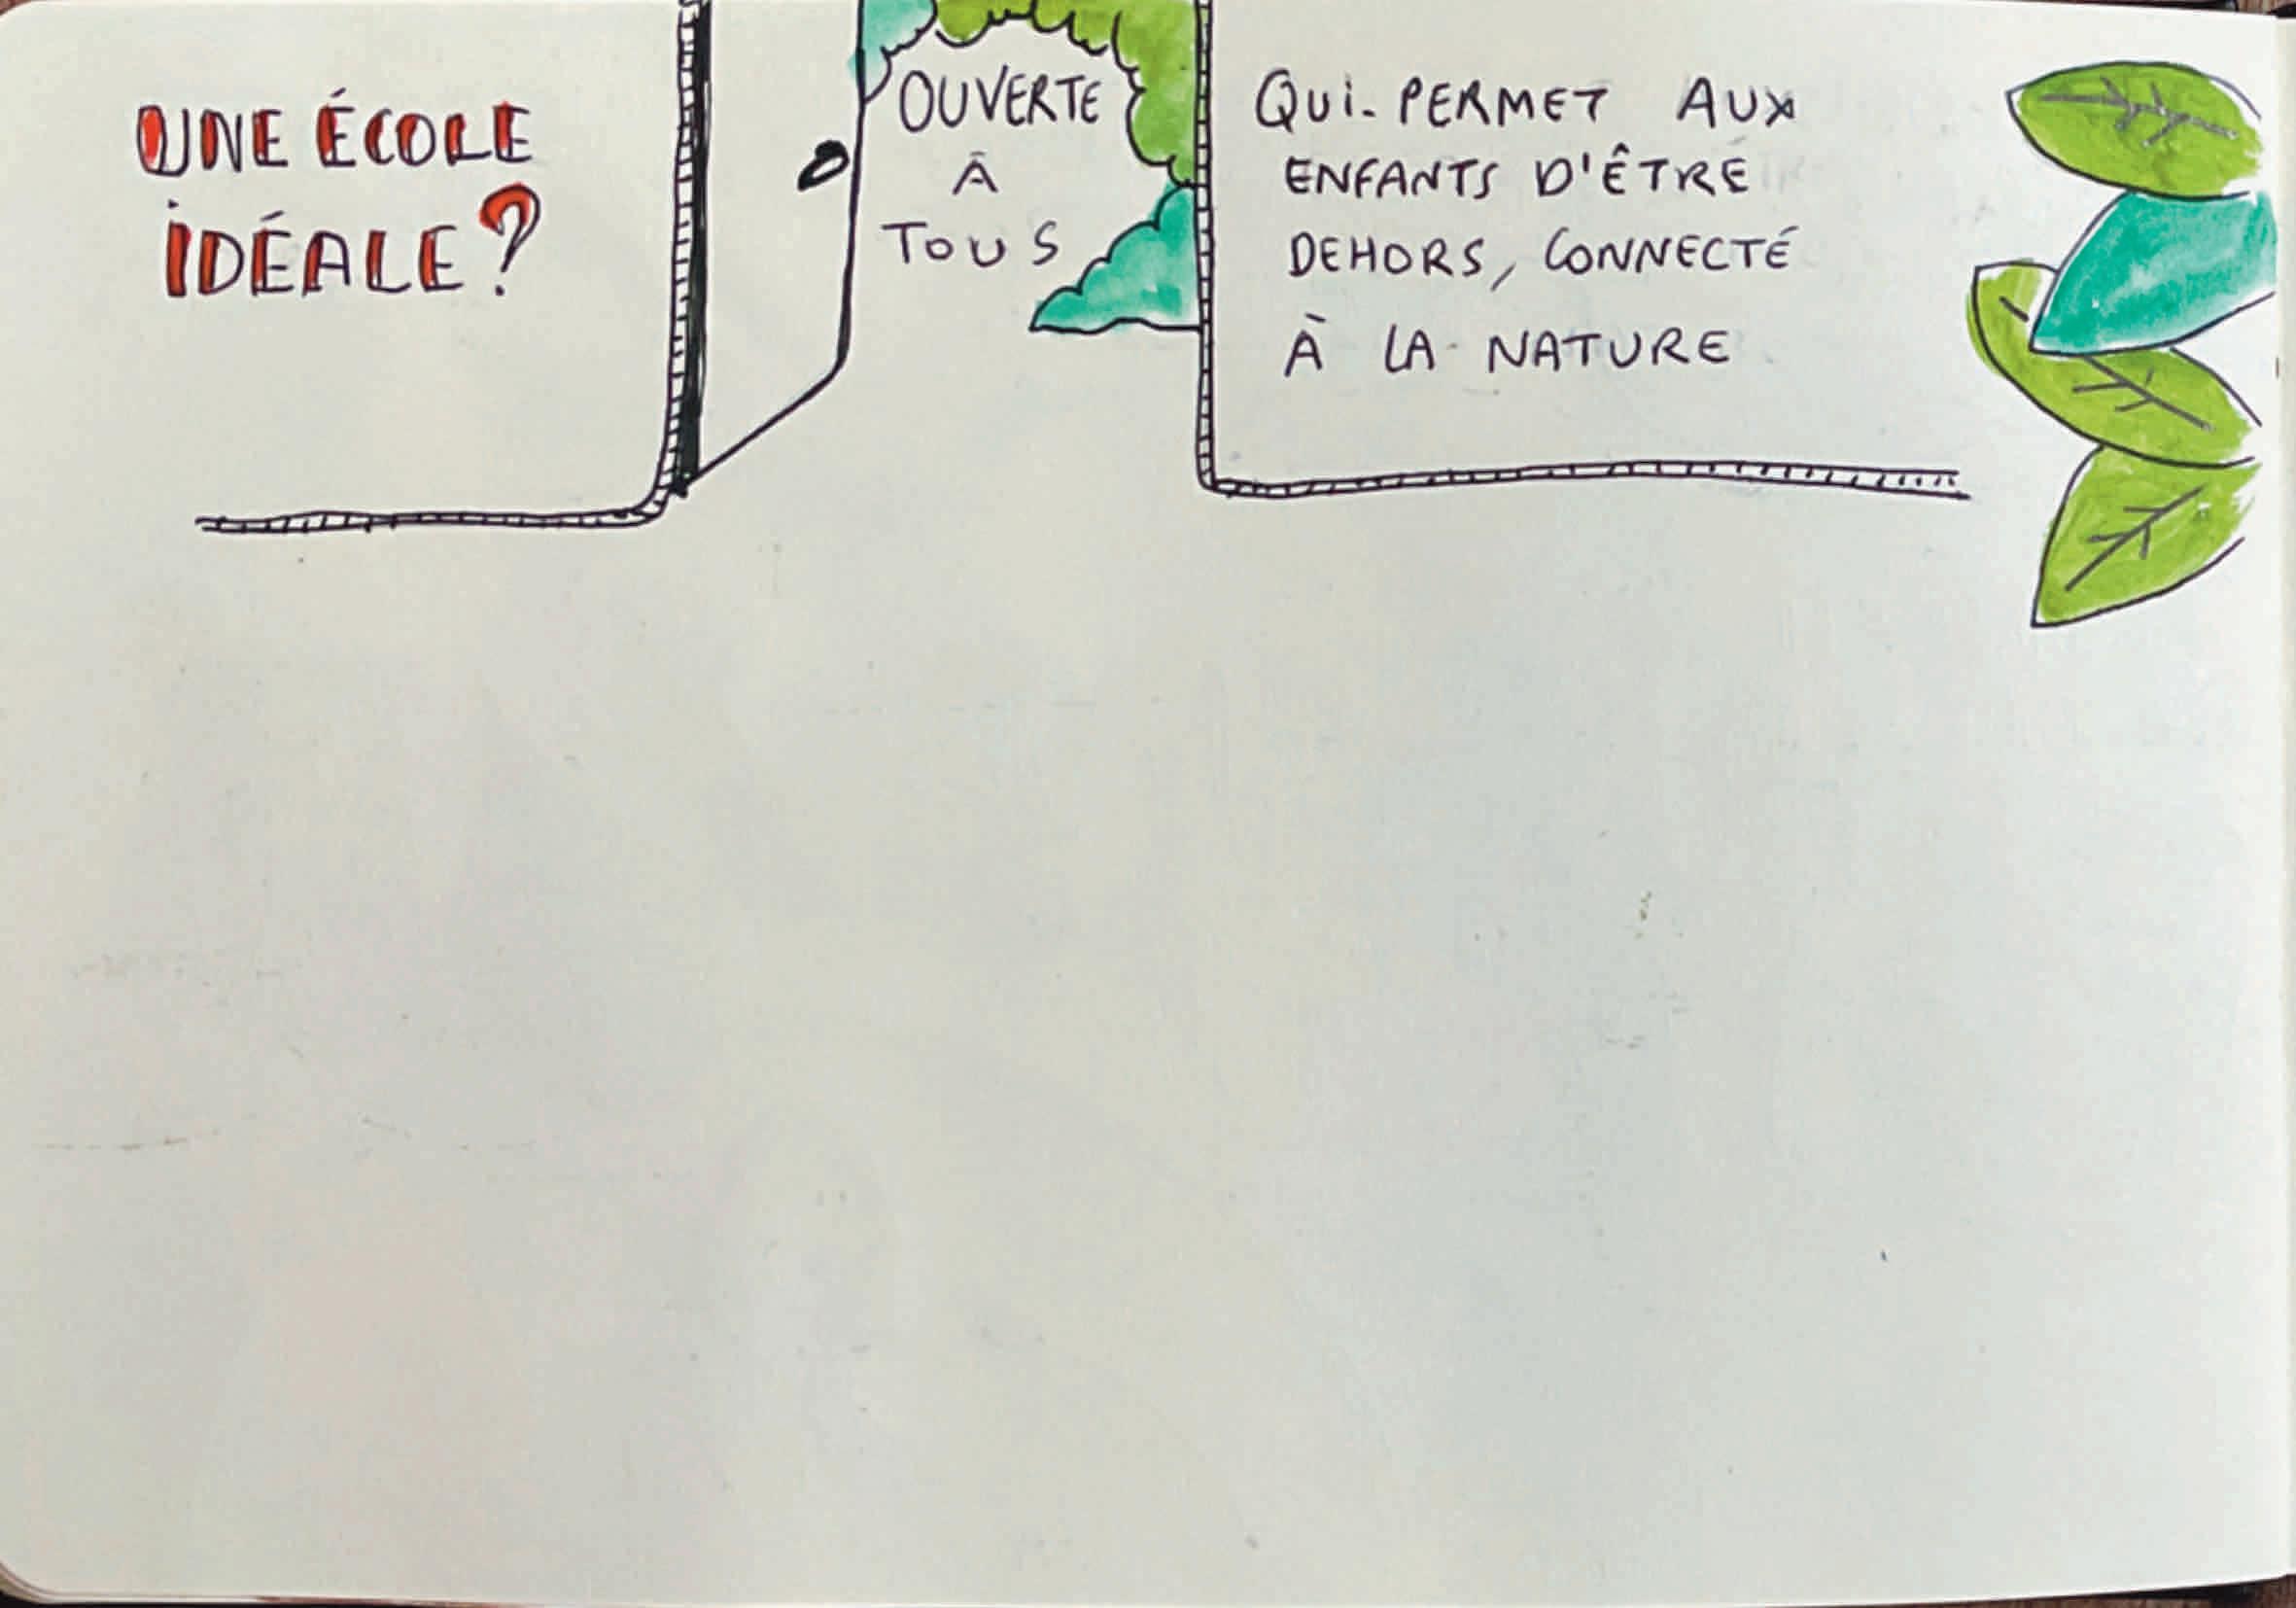 UNE ÉCOLE
IDÉALE?
OUVERTE
À
TOUS
QUI PERMET AUX
ENFANTS D'ÊTRE
DEHORS, CONNECTÉ
À LA NATURE